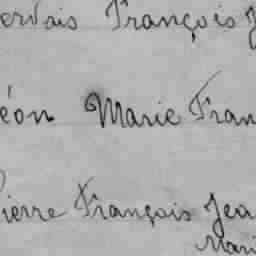 ervais François J
éon Marie Fran
Pierre François Jea
Mari